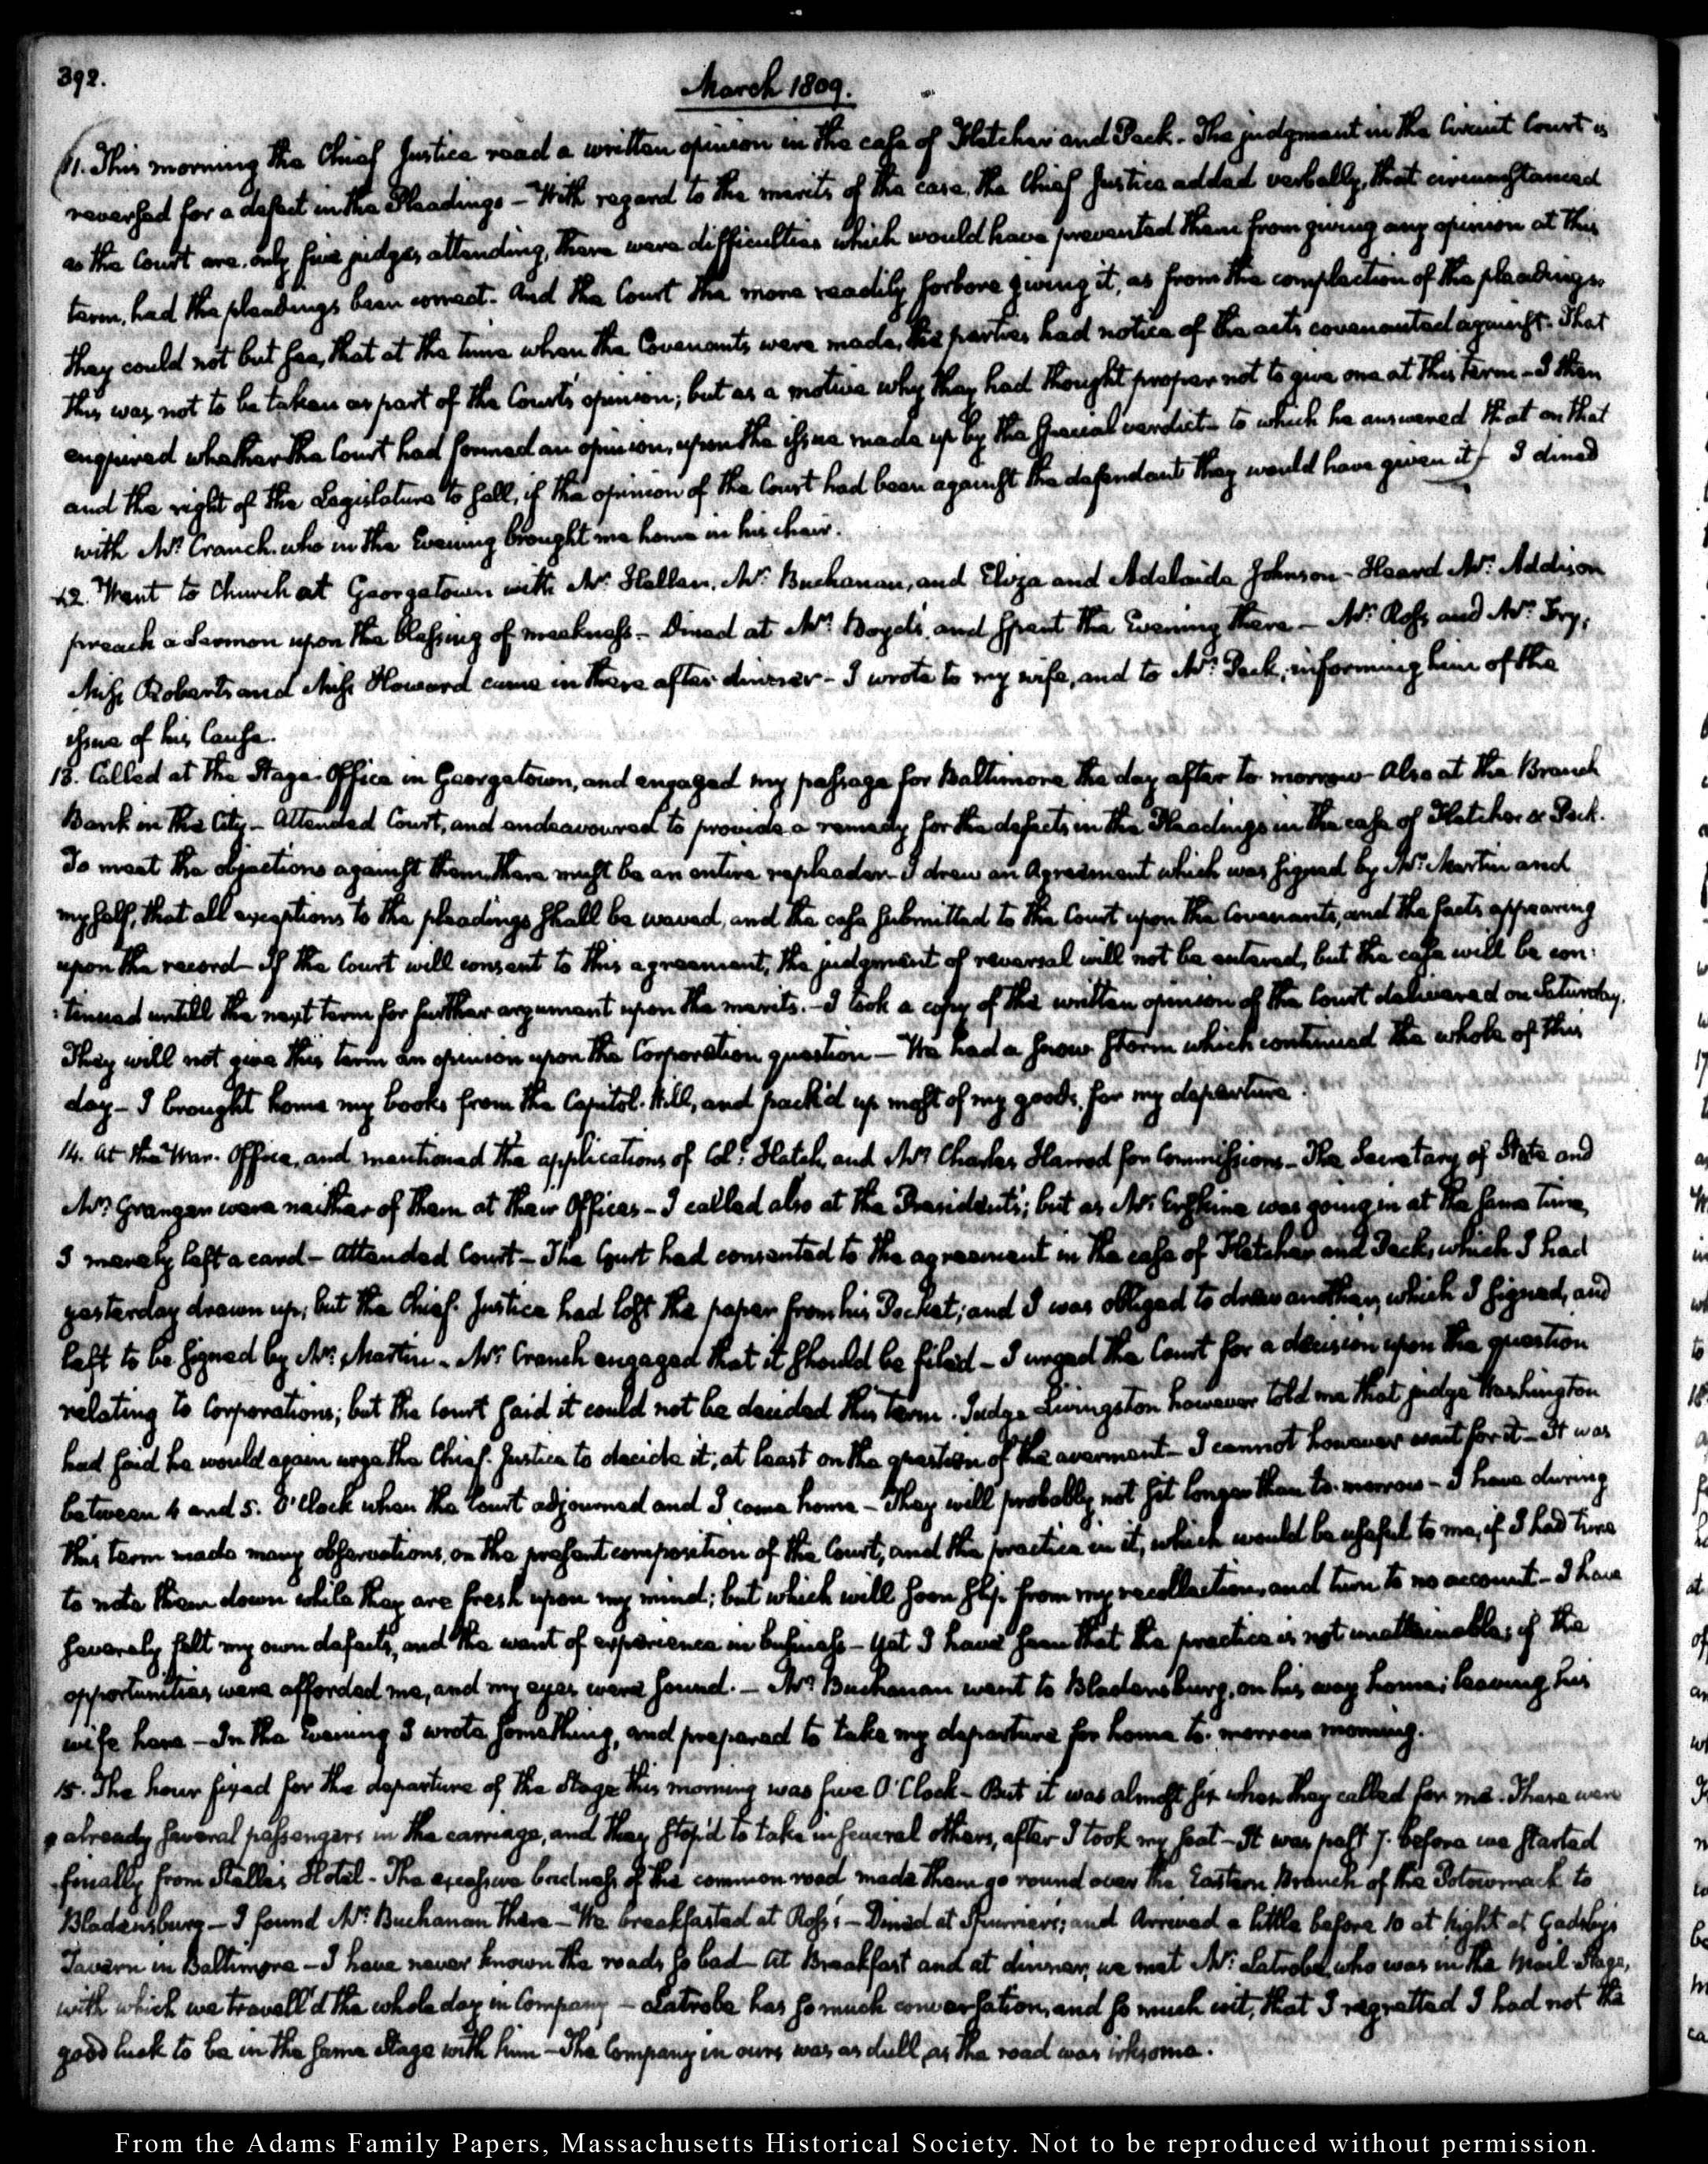 392.
March 1809.
11. This morning the Chief Justice read a written opinion in the case of Fletcher and Peck. The judgment in the Circuit Court is
reversed for a defect in the Pleadings — With regard to the merits of the case, the Chief Justice added verbally, that circumstanced
as the Court are, only five judges attending, there were difficulties which would have prevented them from giving any opinion at this
term, had the pleadings been correct. And the Court the more readily forbore giving it, as from the complection of the pleadings
they could not but see, that at the time when the Covenants were made, the parties had notice of the acts covenanted against. That
this was not to be taken as part of the Court's opinion; but as a motive why they had thought proper not to give one at this term — I then
enquired whether the Court had formed an opinion, upon the issue made up by the special verdict — to which he answered that on that
and the right of the Legislature to sell, if the opinion of the Court had been against the defendant they would have given it) I dined
with Mr. Cranch, who in the Evening brought me home in his chair.
12. Went to Church at Georgetown with Mr. Hellen, Mr. Buchanan, and Eliza and Adelaide Johnson — Heard Mr. Addison
preach a Sermon upon the blessing of meekness — Dined at Mr. Boyd's, and spent the Evening there — Mr. Ross and Mr. Fry,
Miss Roberts and Miss Howard came in there after dinner — I wrote to my wife, and to Mr. Peck, informing him of the
issue of his Cause.
13. Called at the Stage-Office in Georgetown, and engaged my passage for Baltimore the day after to morrow — Also at the Branch
Bank in the City — Attended Court, and endeavoured to provide a remedy for the defects in the Pleadings in the case of Fletcher & Peck.
To meet the objections against them, there must be an entire repleader — I drew an Agreement which was signed by Mr. Martin and
myself, that all exceptions to the pleadings shall be waved, and the case submitted to the Court upon the Covenants, and the facts appearing
upon the record — If the Court will consent to this agreement, the judgment of reversal will not be entered, but the case will be con:
:tinued untill the next term for further argument upon the merits. — I took a copy of the written opinion of the Court delivered on Saturday.
They will not give this term an opinion upon the Corporation question — We had a snow storm which continued the whole of this
day — I brought home my books from the Capitol-Hill, and pack'd up most of my goods, for my departure.
14. At the War-Office, and mentioned the applications of Coll. Hatch, and Mr. Charles Harrod for Commissions — The Secretary of State and
Mr. Granger were neither of them at their Offices — I called also at the President's; but as Mr. Erskine was going in at the same time,
I merely left a card — Attended Court — The Court had consented to the agreement in the case of Fletcher and Peck, which I had
yesterday drawn up; but the Chief-Justice had lost the paper from his Pocket; and I was obliged to draw another, which I signed, and
left to be signed by Mr. Martin. Mr. Cranch engaged that it should be filed — I urged the Court for a decision upon the question
relating to Corporations; but the Court said it could not be decided this term. Judge Livingston however told me that judge Washington
had said he would again urge the Chief-Justice to decide it; at least on the question of the averment — I cannot however wait for it — It was
between 4 and 5. O'Clock when the Court adjourned and I came home — They will probably not sit longer than to-morrow — I have during
this term made many observations, on the present composition of the Court, and the practice in it, which would be useful to me, if I had time
to note them down while they are fresh upon my mind; but which will soon slip from my recollection, and turn to no account — I have
severely felt my own defects, and the want of experience in business — Yet I have seen that the practice is not unattainable; if the
opportunities were afforded me, and my eyes were sound. — Mr. Buchanan went to Bladensburg, on his way home; leaving his
wife here — In the Evening I wrote something, and prepared to take my departure for home to-morrow morning.
15. The hour fixed for the departure of the Stage this morning was five O'Clock — But it was almost six when they called for me. There were
already several passengers in the carriage, and they stop'd to take in several others, after I took my seat — It was past 7. before we started
finally from Stelle's Hotel — The excessive badness of the common road made them go round over the Eastern Branch of the Potowmack to
Bladensburg — I found Mr. Buchanan there — We breakfasted at Ross's — Dined at Spurrier's; and Arrived a little before 10 at Night at Gadsby's
Tavern in Baltimore — I have never known the roads so bad — At Breakfast and at dinner, we met Mr. Latrobe, who was in the Mail-Stage,
with which we travell'd the whole day in Company — Latrobe has so much conversation, and so much wit, that I regretted I had not the
good luck to be in the same Stage with him — The Company in ours was as dull, as the road was irksome.
From the Adams Family Papers, Massachusetts Historical Society. Not to be reproduced without permission.